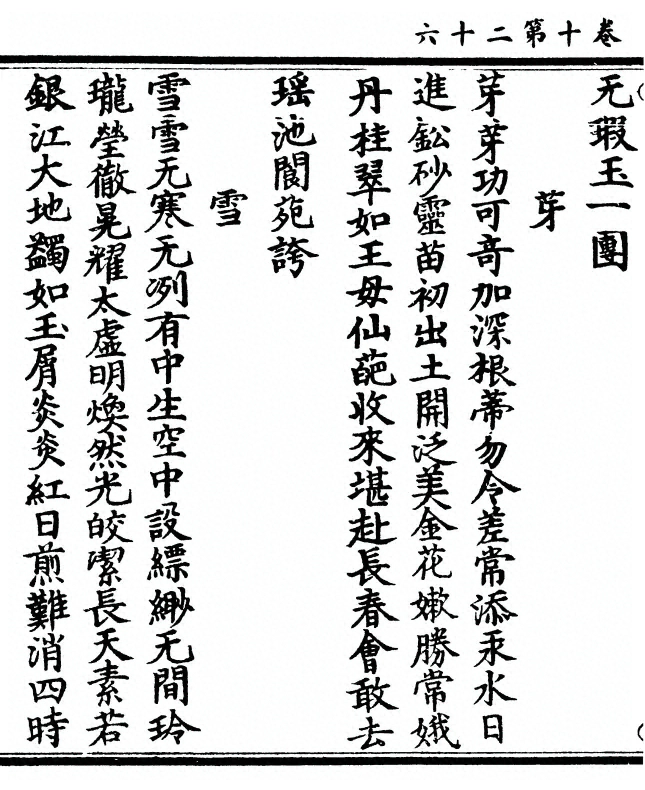 卷十第二十六
无瑕玉一團
芽
芽芽功可竒加深根蒂勿令差常添汞水日
進鈆砂靈苗初出土開泛美金花嫰勝常娥
丹桂翠如王母仙葩收來堪赴長春會敢去
瑶池閬苑誇
雪
雪雪无寒无冽有中生空中設縹緲无間玲
瓏瑩徹晃耀太虛明煥然光皎潔長天素若
銀江大地蠲如玉屑炎炎紅日煎難消四時